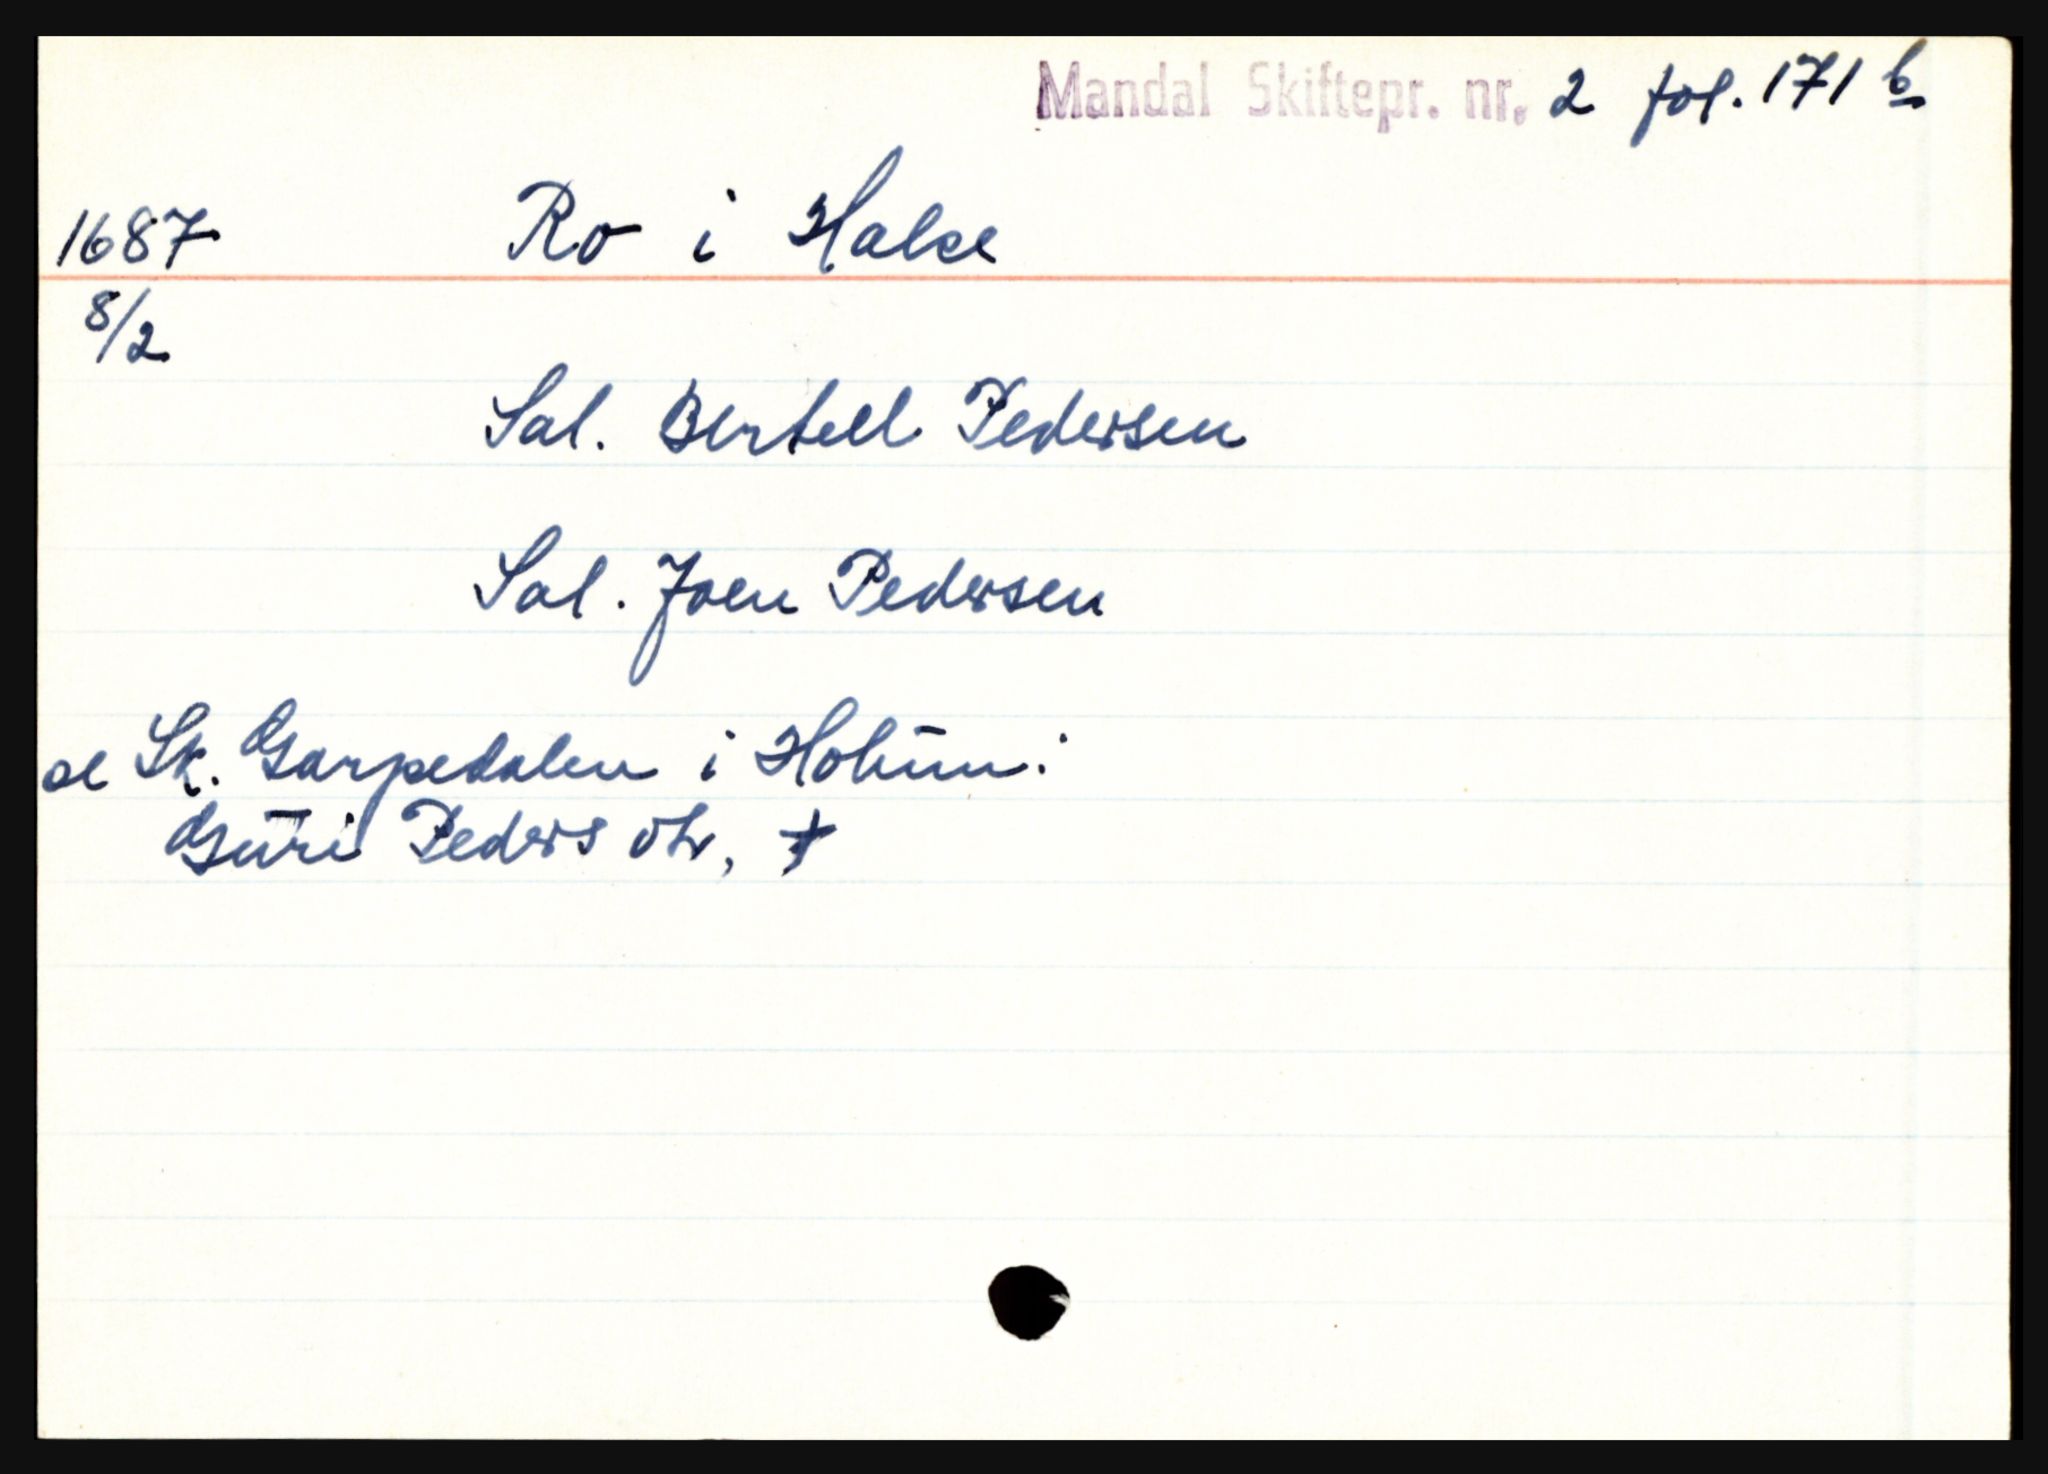 Mandal Skiftepr. nr. 2 fol. 171 b
1687 Ro i Halse
8/2
Sal. Bertell Pedersen
Sal. Joen Pedersen
se Sk. Garpedalen i Holum:
Guri Pedersdtr, †